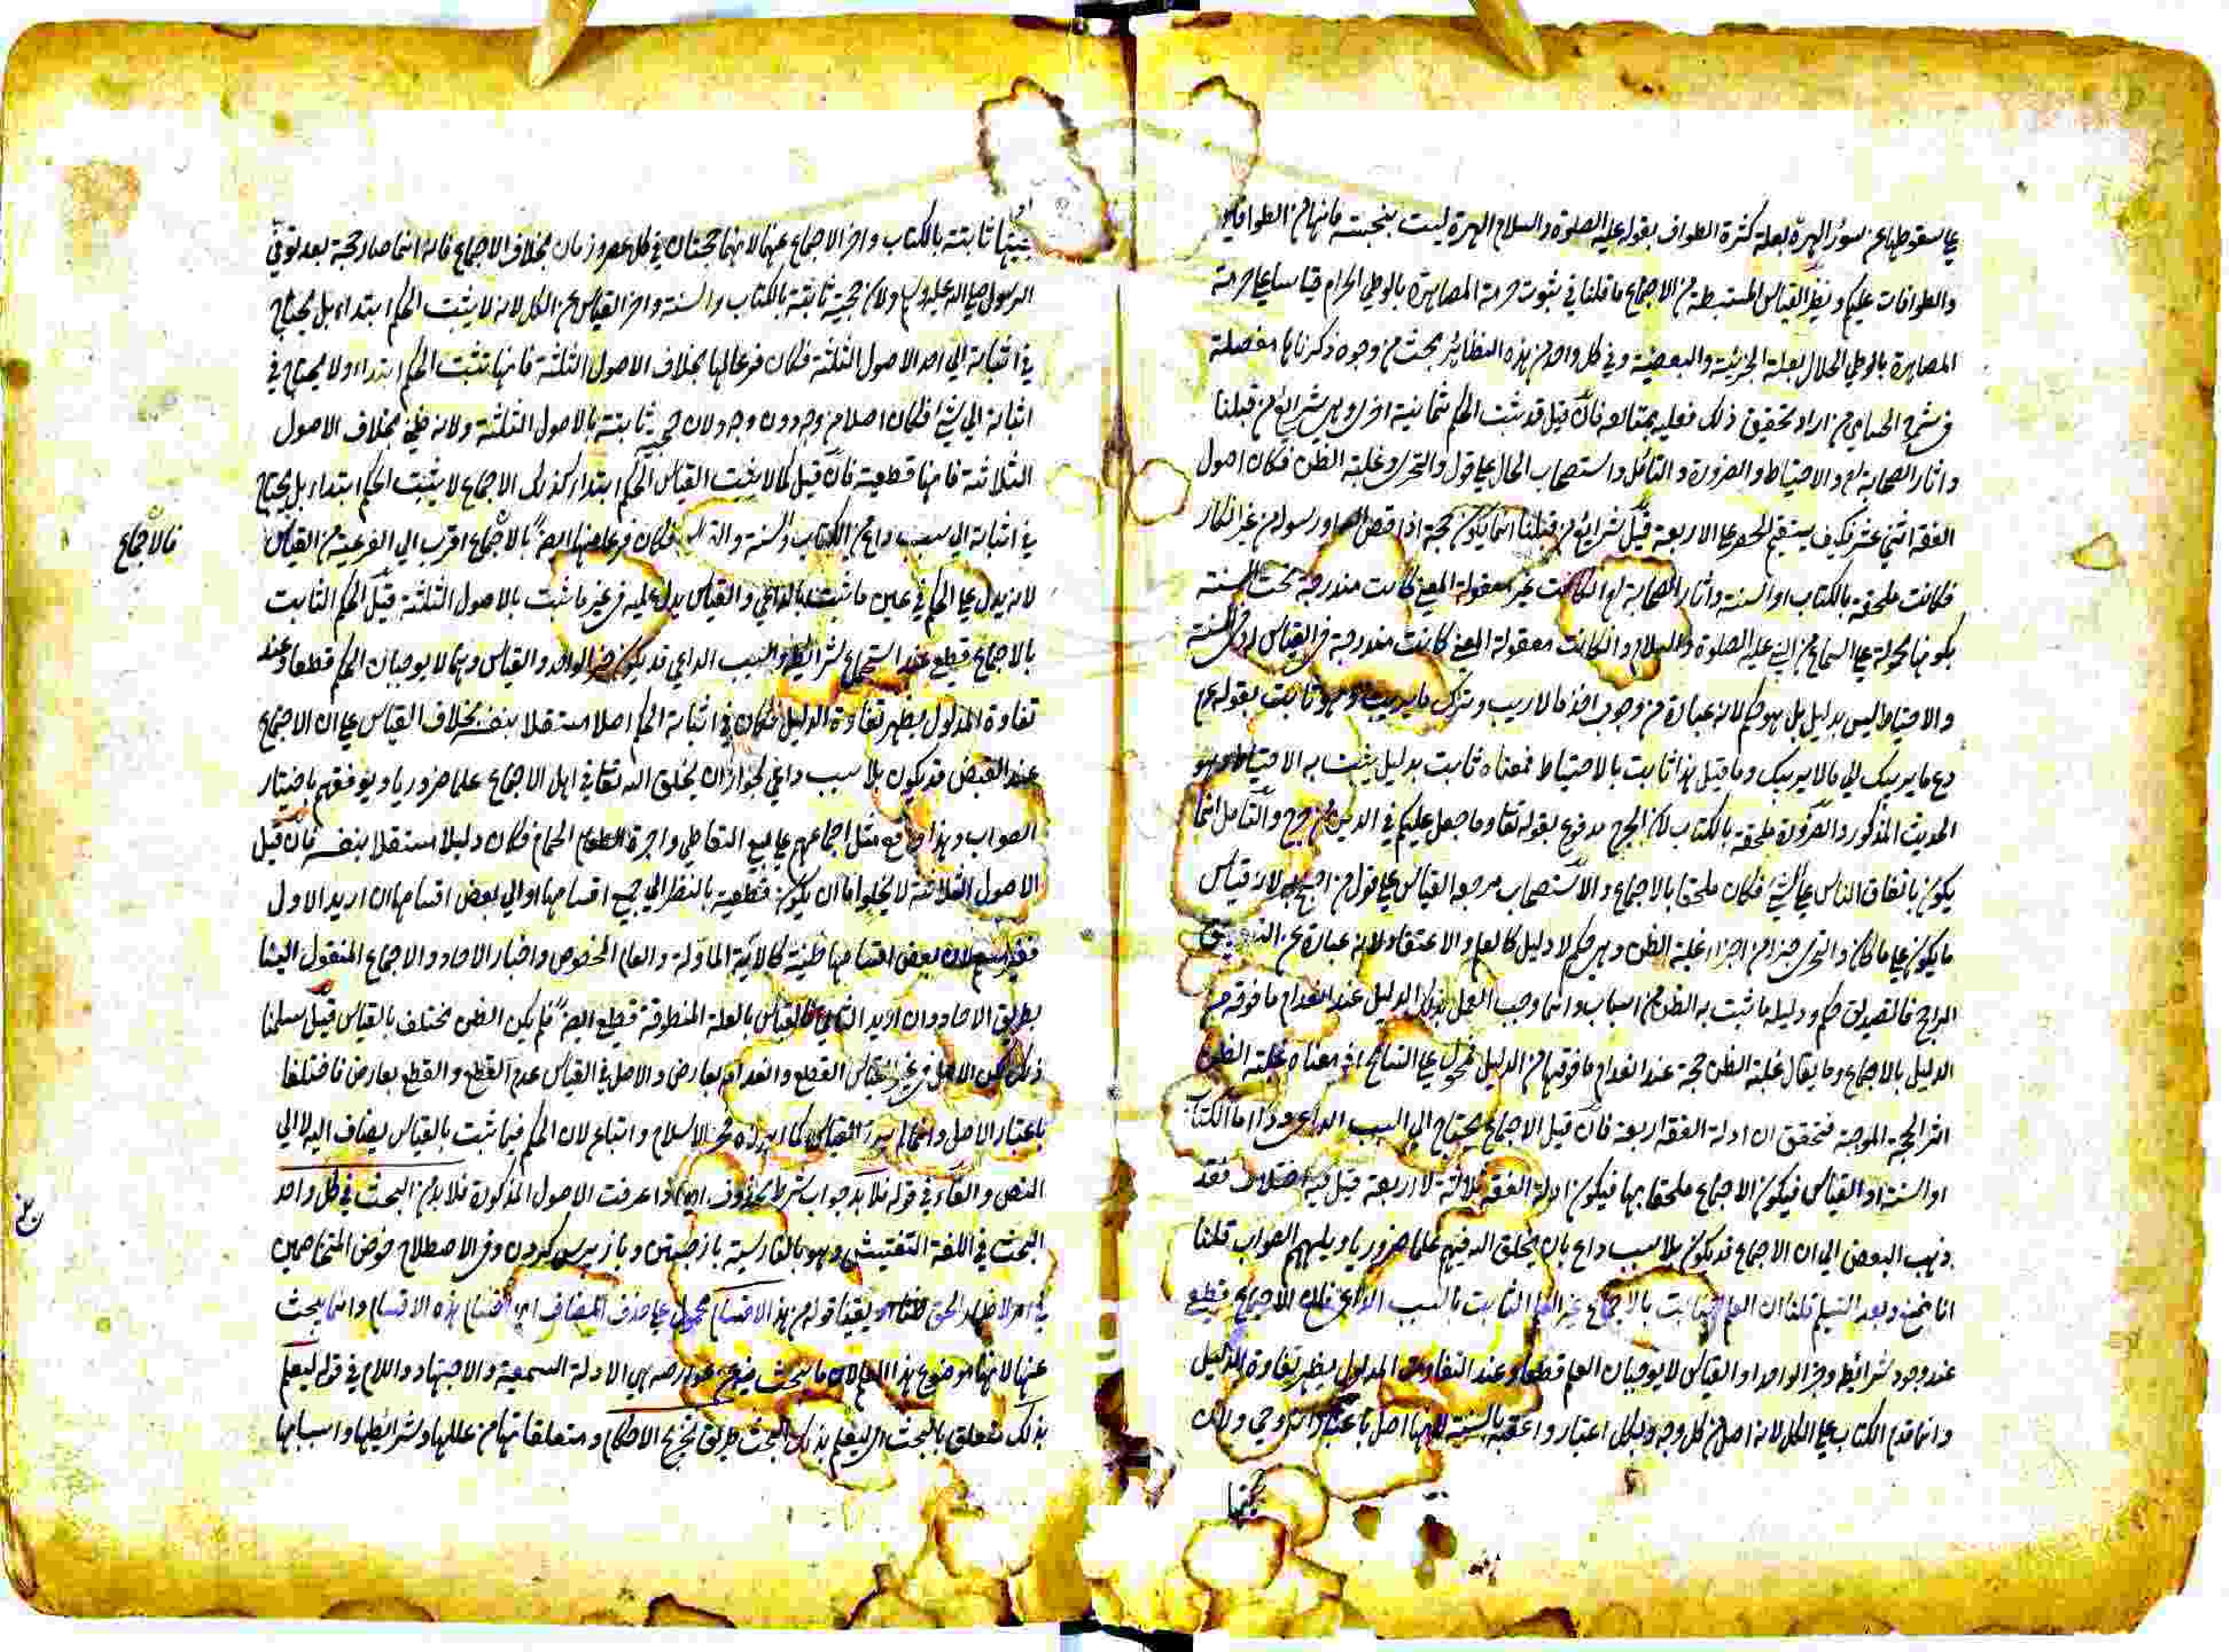 علي سقوطها عن سؤر الهرة بعلة كثرة الطواف بقوله عليه الصلوة والسلام الهرة ليست بنجسة فانها من الطوافين
والطوافات عليكم ونظير القياس المستنبطة من الاجماع ما قلنا في ثبوت حرمة المصاهرة بالوطي الحرام قياسا علي حرمة
المصاهرة بالوطي الحلال بعلة الجزئية والبعضية وفي كل واحد من هذه النظائر بحث من وجوه ذكرناها مفصلة
في شرح الحسامي من اراد تحقيق ذلك فعليه بمطالعه فان قيل قد ثبت الحكم بثمانية اخري وهي شرايع من قبلنا
واثار الصحابة رض والاحتياط والضرورة والتامل واستصحاب الحال علي قول والتحري وغلبة الظن فكان اصول
الفقه اثني عشر فكيف يستقيم الحصر علي الاربعة قيل شرايع من قبلنا انما يكون حجة اذا قص الله او رسوله من غير انكار
فكانت ملحقة بالكتاب او السنة واثار الصحابة ان كانت غير معقولة المعني كانت مندرجة تحت السنة
بكونها محمولة علي السماع من النبي عليه الصلوة والسلام وان كانت معقولة المعني كانت مندرجة في القياس او في السنة
والاحتياط ليس بدليل بل هو حكم لانه عبارة عن وجوب اخذ ما لا ريب وترك ما يريب وهو ثابت بقوله عم
دع ما يريبك الي ما لا يريبك وما قيل هذا ثابت بالاحتياط فمعناه ثابت بدليل يثبت به الاحتياط وهو
الحديث المذكور والضرورة ملحقة بالكتاب لان الحرج مدفوع بقوله تعا وما جعل عليكم في الدين من حرج والتامل انما
يكون باتفاق الناس علي الشي فكان ملحقا بالاجماع والاستصحاب مرجعه القياس علي قول من احتج به لانه قياس
ما يكون علي ما كان والتحري جزء من اجزاء غلبة الظن وهي حكم لا دليل كالعلم والاعتقاد لانه عبارة عن التصديق
الراجح فالتصديق حكم ودليله ما ثبت به الظن من اسباب وانما وجب العمل بذلك الدليل عند انعدام ما فوقه من
الدليل بالاجماع وما يقال غلبة الظن حجة عند انعدام ما فوقها من الدليل محمول علي التسامح اذ معناه غلبة الظن
اثر الحجة الموجبة فتحقق ان ادلة الفقه اربعة فان قيل الاجماع يحتاج الي السبب الداعي وذا اما الكتاب
او السنة او القياس فيكون الاجماع ملحقا بها فيكون ادلة الفقه ثلاثة لا اربعة قيل فيه اختلاف فقد
ذهب البعض الي ان الاجماع قد يكون بلا سبب داع بان يخلق الله فيهم علما ضروريا ويلهمهم الصواب قلنا
انا نمنع وبعد التسليم قلنا ان العلم الثابت بالاجماع غير العلم الثابت بالسبب الداعي فان الاجماع قطعي
عند وجود شرائطه وخبر الواحد او القياس لا يوجبان العلم قطعا وعند التفاوت المدلول يظهر تفاوة الدليل
وانما قدم الكتاب علي الكل لانه اصل من كل وجه وبكل اعتبار واعقبه بالسنة لانها اصل باعتبار انه وحي ولان
حجيتها
حجيتها ثابتة بالكتاب واخر الاجماع عنهما لانهما حجتان في كل عصر وزمان بخلاف الاجماع فانه انما صار حجة بعد توفي
الرسول صلي الله عليه وسلم ولان حجيته ثابتة بالكتاب والسنة واخر القياس عن الكل لانه لا يثبت الحكم ابتداء بل يحتاج
في اثباته الي احد الاصول الثلثة فكان فرعا لها بخلاف الاصول الثلثة فانها تثبت الحكم ابتداء ولا يحتاج في
اثباته الي شي فكان اصلا من وجه دون وجه ولان حجيته ثابتة بالاصول الثلثة ولانه ظني بخلاف الاصول
الثلاثة فانها قطعية فان قيل كما لا يثبت القياس الحكم ابتداء كذلك الاجماع لا يثبت الحكم ابتداء بل يحتاج
في اثباته الي سبب داع من الكتاب والسنة والقياس فكان فرعا لهما ايضا بالاجماع اقرب الي الفرعية من القياس
فالاجماع
لانه يدل علي الحكم في عين ما ثبت بالداعي والقياس يدل عليه في غير ما ثبت بالاصول الثلثة قيل الحكم الثابت
بالاجماع قطعي عند استجماع شرائطه والسبب الداعي قد يكون خبر الواحد والقياس وهما لا يوجبان الحكم قطعا وعند
تفاوة المدلول يظهر تفاوة الدليل فكان في اثبات الحكم اصلا مستقلا بنفسه بخلاف القياس علي ان الاجماع
عند البعض قد يكون بلا سبب داعي لجواز ان يخلق الله تعا في اهل الاجماع علما ضروريا ويوفقهم باختيار
الصواب وهذا واقع مثل اجماعهم علي بيع التعاطي واجرة الحمام فكان دليلا مستقلا بنفسه فان قيل
الاصول الثلاثة لا يخلو اما ان يكون قطعية بالنظر الي جميع اقسامها او الي بعض اقسامها ان اريد الاول
فغير مسلم لان بعض اقسامها ظنية كالاية الماولة والعام المخصوص واخبار الاحاد والاجماع المنقول الينا
بطريق الاحاد وان اريد الثاني فالقياس بالعلة المنطوقة قطعي ايضا فلم يكن الظن مختلف بالقياس قيل سلمنا
ذلك لكن الاصل في غير القياس القطع وانعدامه بعارض والاصل في القياس عدم القطع والقطع بعارض فاختلفا
باعتبار الاصل وانما لم يورد القياس كما اورده فخر الاسلام واتباعه لان الحكم فيما ثبت بالقياس يضاف اليه لا الي
النص والفاء في قوله فلا بد جواب شرط محذوف اي اذا عرفت الاصول المذكورة فلا بد من البحث في كل واحد
البحث في اللغة التفتيش وهو بالفارسية باز جستن وباز پرس كردن وفي الاصطلاح خوض المتخاصمين
في امر لاظهار الحق ظنا او يقينا قوله من هذه الاقسام محمول علي حذف المضاف اي اقسام هذه الاقسام وانما يبحث
عنها لانها موضوع هذا العلم لان ما يبحث فيه عن عوارضه هي الادلة السمعية والاجتهاد واللام في قوله ليعلم
بذلك متعلق بالبحث اي ليعلم بذلك البحث طريق تخريج الاحكام ومتعلقاتها من عللها وشرائطها واسبابها